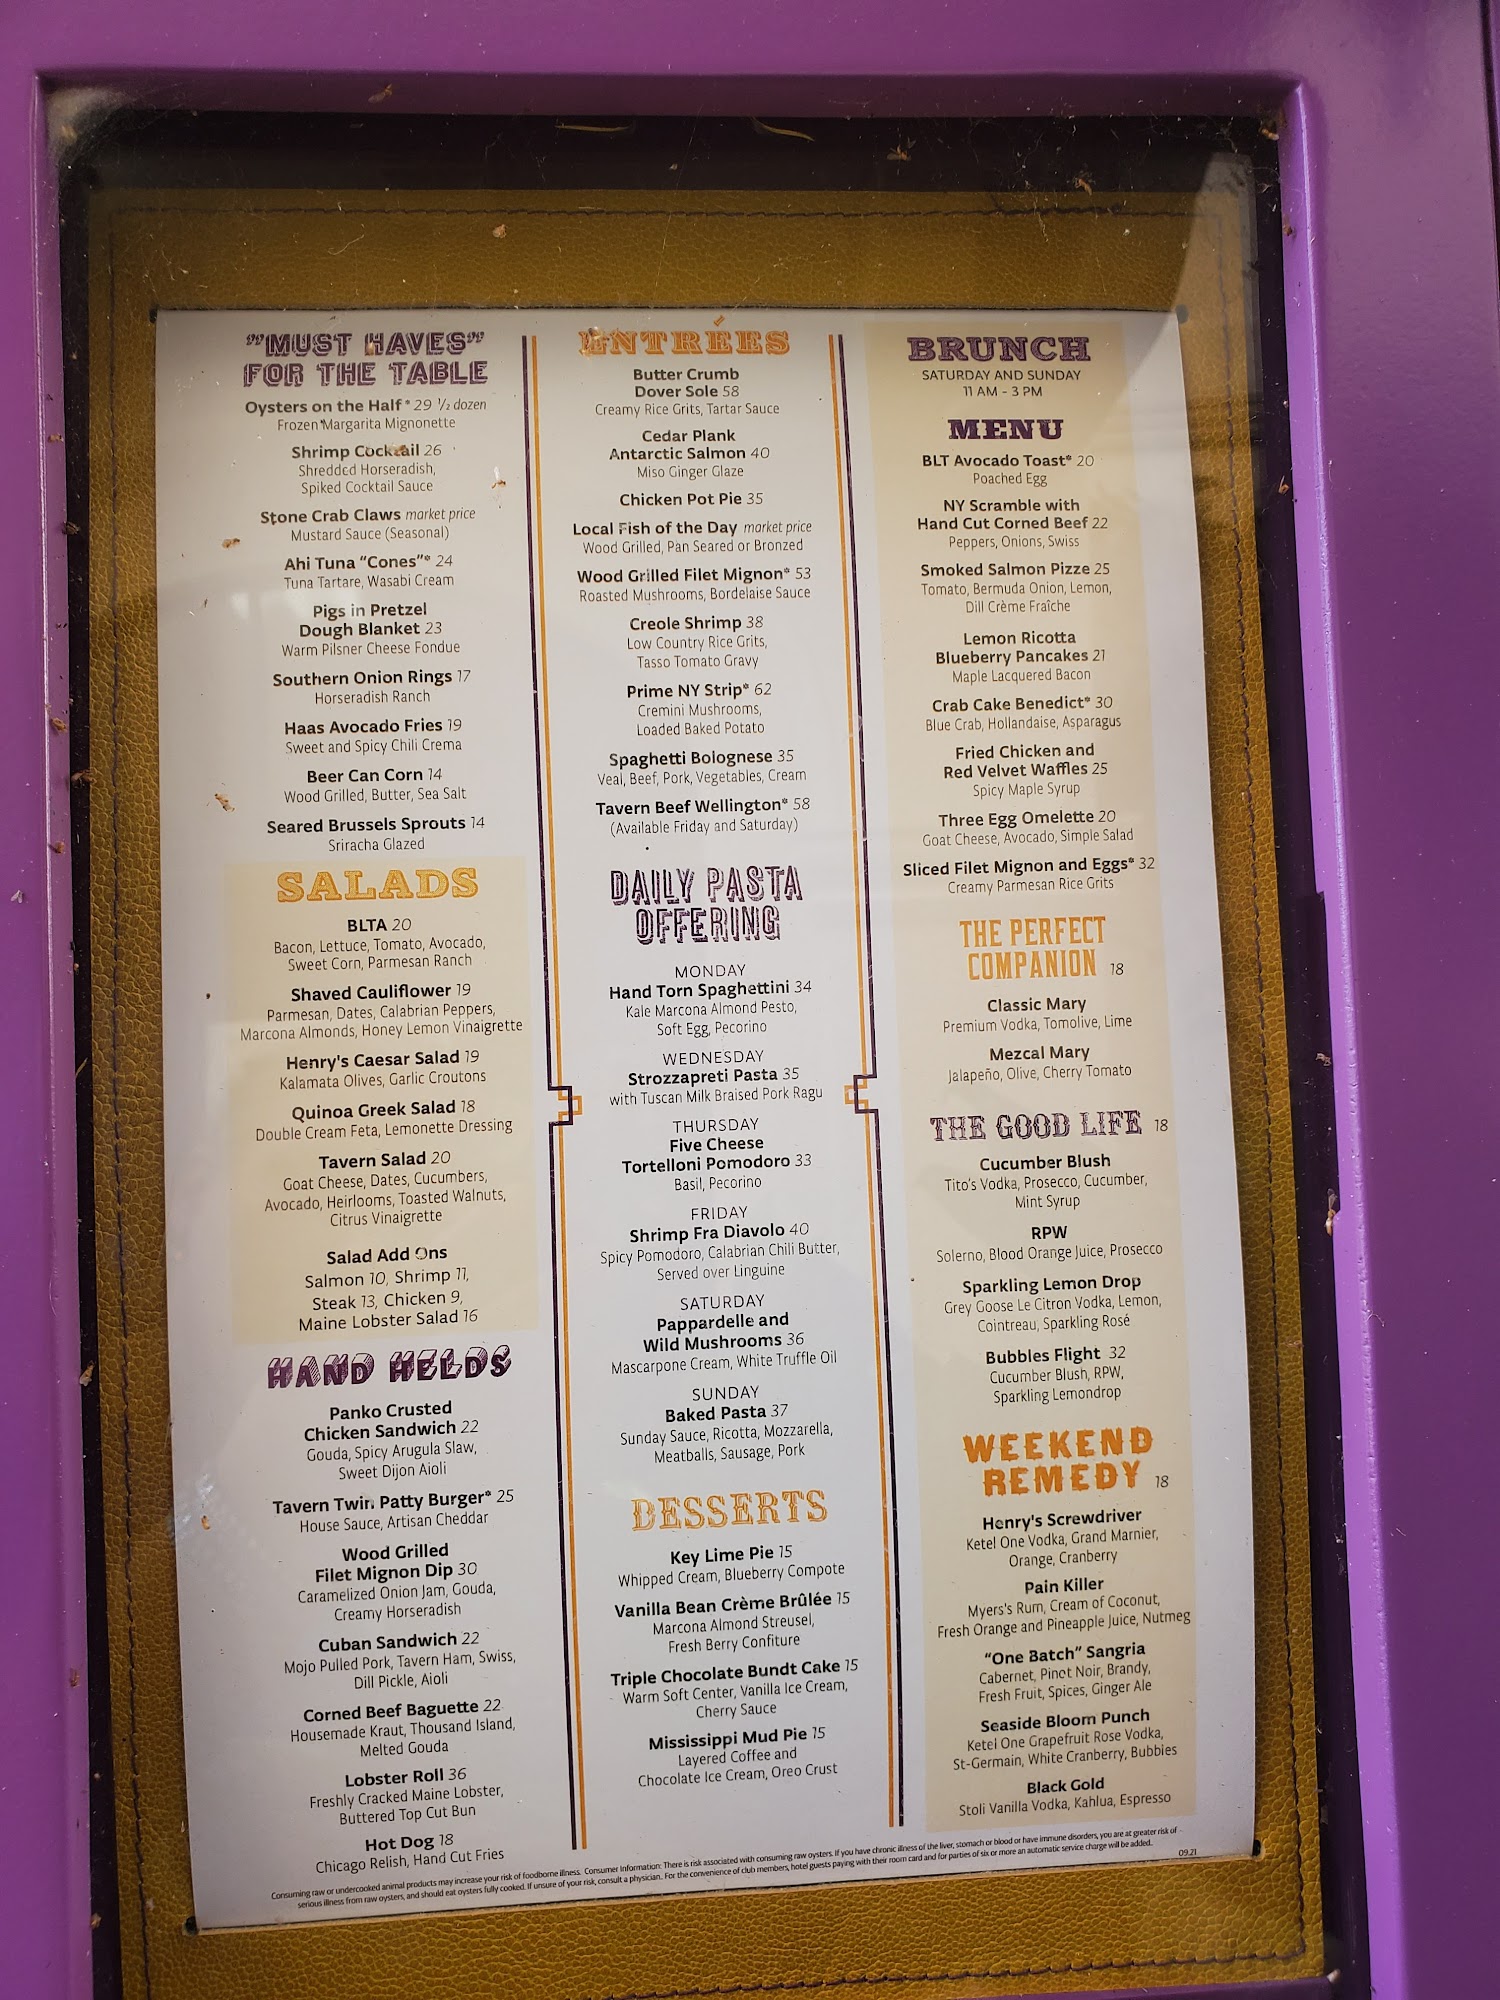 "MUST HAVES"
FOR THE TABLE
Oysters on the Half* 29 ½ dozen
Frozen Margarita Mignonette
Shrimp Cocktail 26
Shredded Horseradish,
Spiked Cocktail Sauce
Stone Crab Claws market price
Mustard Sauce (Seasonal)
Ahi Tuna "Cones"* 24
Tuna Tartare, Wasabi Cream
Pigs in Pretzel
Dough Blanket 23
Warm Pilsner Cheese Fondue
Southern Onion Rings 17
Horseradish Ranch
Haas Avocado Fries 19
Sweet and Spicy Chili Crema
Beer Can Corn 14
Wood Grilled, Butter, Sea Salt
Seared Brussels Sprouts 14
Sriracha Glazed
SALADS
BLTA 20
Bacon, Lettuce, Tomato, Avocado,
Sweet Corn, Parmesan Ranch
Shaved Cauliflower 19
Parmesan, Dates, Calabrian Peppers,
Marcona Almonds, Honey Lemon Vinaigrette
Henry's Caesar Salad 19
Kalamata Olives, Garlic Croutons
Quinoa Greek Salad 18
Double Cream Feta, Lemonette Dressing
Tavern Salad 20
Goat Cheese, Dates, Cucumbers,
Avocado, Heirlooms, Toasted Walnuts,
Citrus Vinaigrette
Salad Add Ons
Salmon 10, Shrimp 11,
Steak 13, Chicken 9,
Maine Lobster Salad 16
HAND HELDS
Panko Crusted
Chicken Sandwich 22
Gouda, Spicy Arugula Slaw,
Sweet Dijon Aioli
Tavern Twin Patty Burger* 25
House Sauce, Artisan Cheddar
Wood Grilled
Filet Mignon Dip 30
Caramelized Onion Jam, Gouda,
Creamy Horseradish
Cuban Sandwich 22
Mojo Pulled Pork, Tavern Ham, Swiss,
Dill Pickle, Aioli
Corned Beef Baguette 22
Housemade Kraut, Thousand Island,
Melted Gouda
Lobster Roll 36
Freshly Cracked Maine Lobster,
Buttered Top Cut Bun
Hot Dog 18
Chicago Relish, Hand Cut Fries
ENTRÉES
Butter Crumb
Dover Sole 58
Creamy Rice Grits, Tartar Sauce
Cedar Plank
Antarctic Salmon 40
Miso Ginger Glaze
Chicken Pot Pie 35
Local Fish of the Day market price
Wood Grilled, Pan Seared or Bronzed
Wood Grilled Filet Mignon* 53
Roasted Mushrooms, Bordelaise Sauce
Creole Shrimp 38
Low Country Rice Grits,
Tasso Tomato Gravy
Prime NY Strip* 62
Cremini Mushrooms,
Loaded Baked Potato
Spaghetti Bolognese 35
Veal, Beef, Pork, Vegetables, Cream
Tavern Beef Wellington* 58
(Available Friday and Saturday)
DAILY PASTA
OFFERING
MONDAY
Hand Torn Spaghettini 34
Kale Marcona Almond Pesto,
Soft Egg, Pecorino
WEDNESDAY
Strozzapreti Pasta 35
with Tuscan Milk Braised Pork Ragu
THURSDAY
Five Cheese
Tortelloni Pomodoro 33
Basil, Pecorino
FRIDAY
Shrimp Fra Diavolo 40
Spicy Pomodoro, Calabrian Chili Butter,
Served over Linguine
SATURDAY
Pappardelle and
Wild Mushrooms 36
Mascarpone Cream, White Truffle Oil
SUNDAY
Baked Pasta 37
Sunday Sauce, Ricotta, Mozzarella,
Meatballs, Sausage, Pork
DESSERTS
Key Lime Pie 15
Whipped Cream, Blueberry Compote
Vanilla Bean Crème Brûlée 15
Marcona Almond Streusel,
Fresh Berry Confiture
Triple Chocolate Bundt Cake 15
Warm Soft Center, Vanilla Ice Cream,
Cherry Sauce
Mississippi Mud Pie 15
Layered Coffee and
Chocolate Ice Cream, Oreo Crust
BRUNCH
SATURDAY AND SUNDAY
11 AM - 3 PM
MENU
BLT Avocado Toast* 20
Poached Egg
NY Scramble with
Hand Cut Corned Beef 22
Peppers, Onions, Swiss
Smoked Salmon Pizze 25
Tomato, Bermuda Onion, Lemon,
Dill Crème Fraîche
Lemon Ricotta
Blueberry Pancakes 21
Maple Lacquered Bacon
Crab Cake Benedict* 30
Blue Crab, Hollandaise, Asparagus
Fried Chicken and
Red Velvet Waffles 25
Spicy Maple Syrup
Three Egg Omelette 20
Goat Cheese, Avocado, Simple Salad
Sliced Filet Mignon and Eggs* 32
Creamy Parmesan Rice Grits
THE PERFECT
COMPANION 18
Classic Mary
Premium Vodka, Tomolive, Lime
Mezcal Mary
Jalapeño, Olive, Cherry Tomato
THE GOOD LIFE 18
Cucumber Blush
Tito's Vodka, Prosecco, Cucumber,
Mint Syrup
RPW
Solerno, Blood Orange Juice, Prosecco
Sparkling Lemon Drop
Grey Goose Le Citron Vodka, Lemon,
Cointreau, Sparkling Rosé
Bubbles Flight 32
Cucumber Blush, RPW,
Sparkling Lemondrop
WEEKEND
REMEDY 18
Henry's Screwdriver
Ketel One Vodka, Grand Marnier,
Orange, Cranberry
Pain Killer
Myers's Rum, Cream of Coconut,
Fresh Orange and Pineapple Juice, Nutmeg
"One Batch" Sangria
Cabernet, Pinot Noir, Brandy,
Fresh Fruit, Spices, Ginger Ale
Seaside Bloom Punch
Ketel One Grapefruit Rose Vodka,
St-Germain, White Cranberry, Bubbles
Black Gold
Stoli Vanilla Vodka, Kahlua, Espresso
Consuming raw or undercooked animal products may increase your risk of foodborne illness. Consumer Information: There is risk associated with consuming raw oysters. If you have chronic illness of the liver, stomach or blood or have immune disorders, you are at greater risk of
serious illness from raw oysters, and should eat oysters fully cooked. If unsure of your risk, consult a physician. For the convenience of club members, hotel guests paying with their room card and for parties of six or more an automatic service charge will be added.
09.21